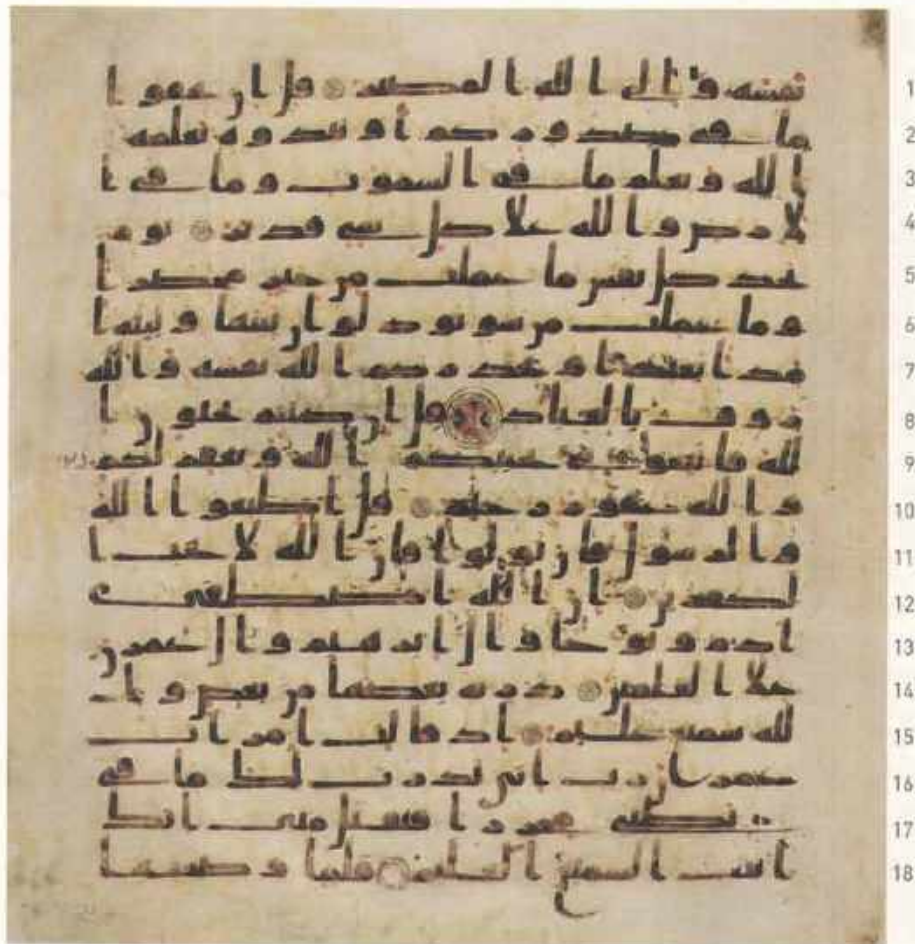 نفسه و الى الله المصير قل ان تخفوا 1
ما في صدوركم او تبدوه يعلمه 2
الله و يعلم ما في السموت و ما في ا 3
لارض و الله على كل شي قدير يوم 4
تجد كل نفس ما عملت من خير محضرا 5
و ما عملت من سو تود لو ان بينها و بينه ا 6
مدا بعيدا و يحذركم الله نفسه و الله 7
روف بالعباد قل ان كنتم تحبون ا 8
لله فاتبعوني يحببكم الله و يغفر لكم 9
و الله غفور رحيم قل اطيعوا الله 10
و الرسول فان تولوا فان الله لا يحب ا 11
لكفرين ان الله اصطفى 12
ادم و نوحا و ال ابرهيم و ال عمرن 13
على العلمين ذرية بعضها من بعض و ا 14
لله سميع عليم اذ قالت امرات 15
عمرن رب اني نذرت لك ما في 16
بطني محررا فتقبل مني انك 17
انت السميع العليم فلما وضعتها 18